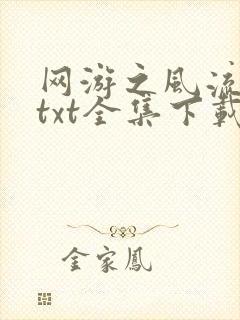 网游之风流
txt全集下载
金家凤